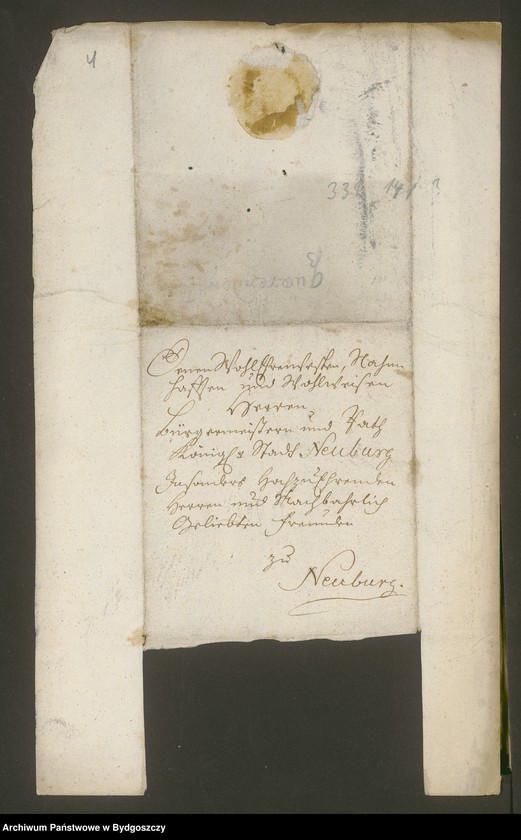 4
Denen WohlEhrenvesten, Nahm
hafften und Wohlweisen
Herren
Bürgermeistern und Rath
Königl. Stadt Neuburg
Insonders Hochzuehrenden
Herren und Nachbahrlich
Geliebten Freunden
zu
Neuburg.
Archiwum Państwowe w Bydgoszczy